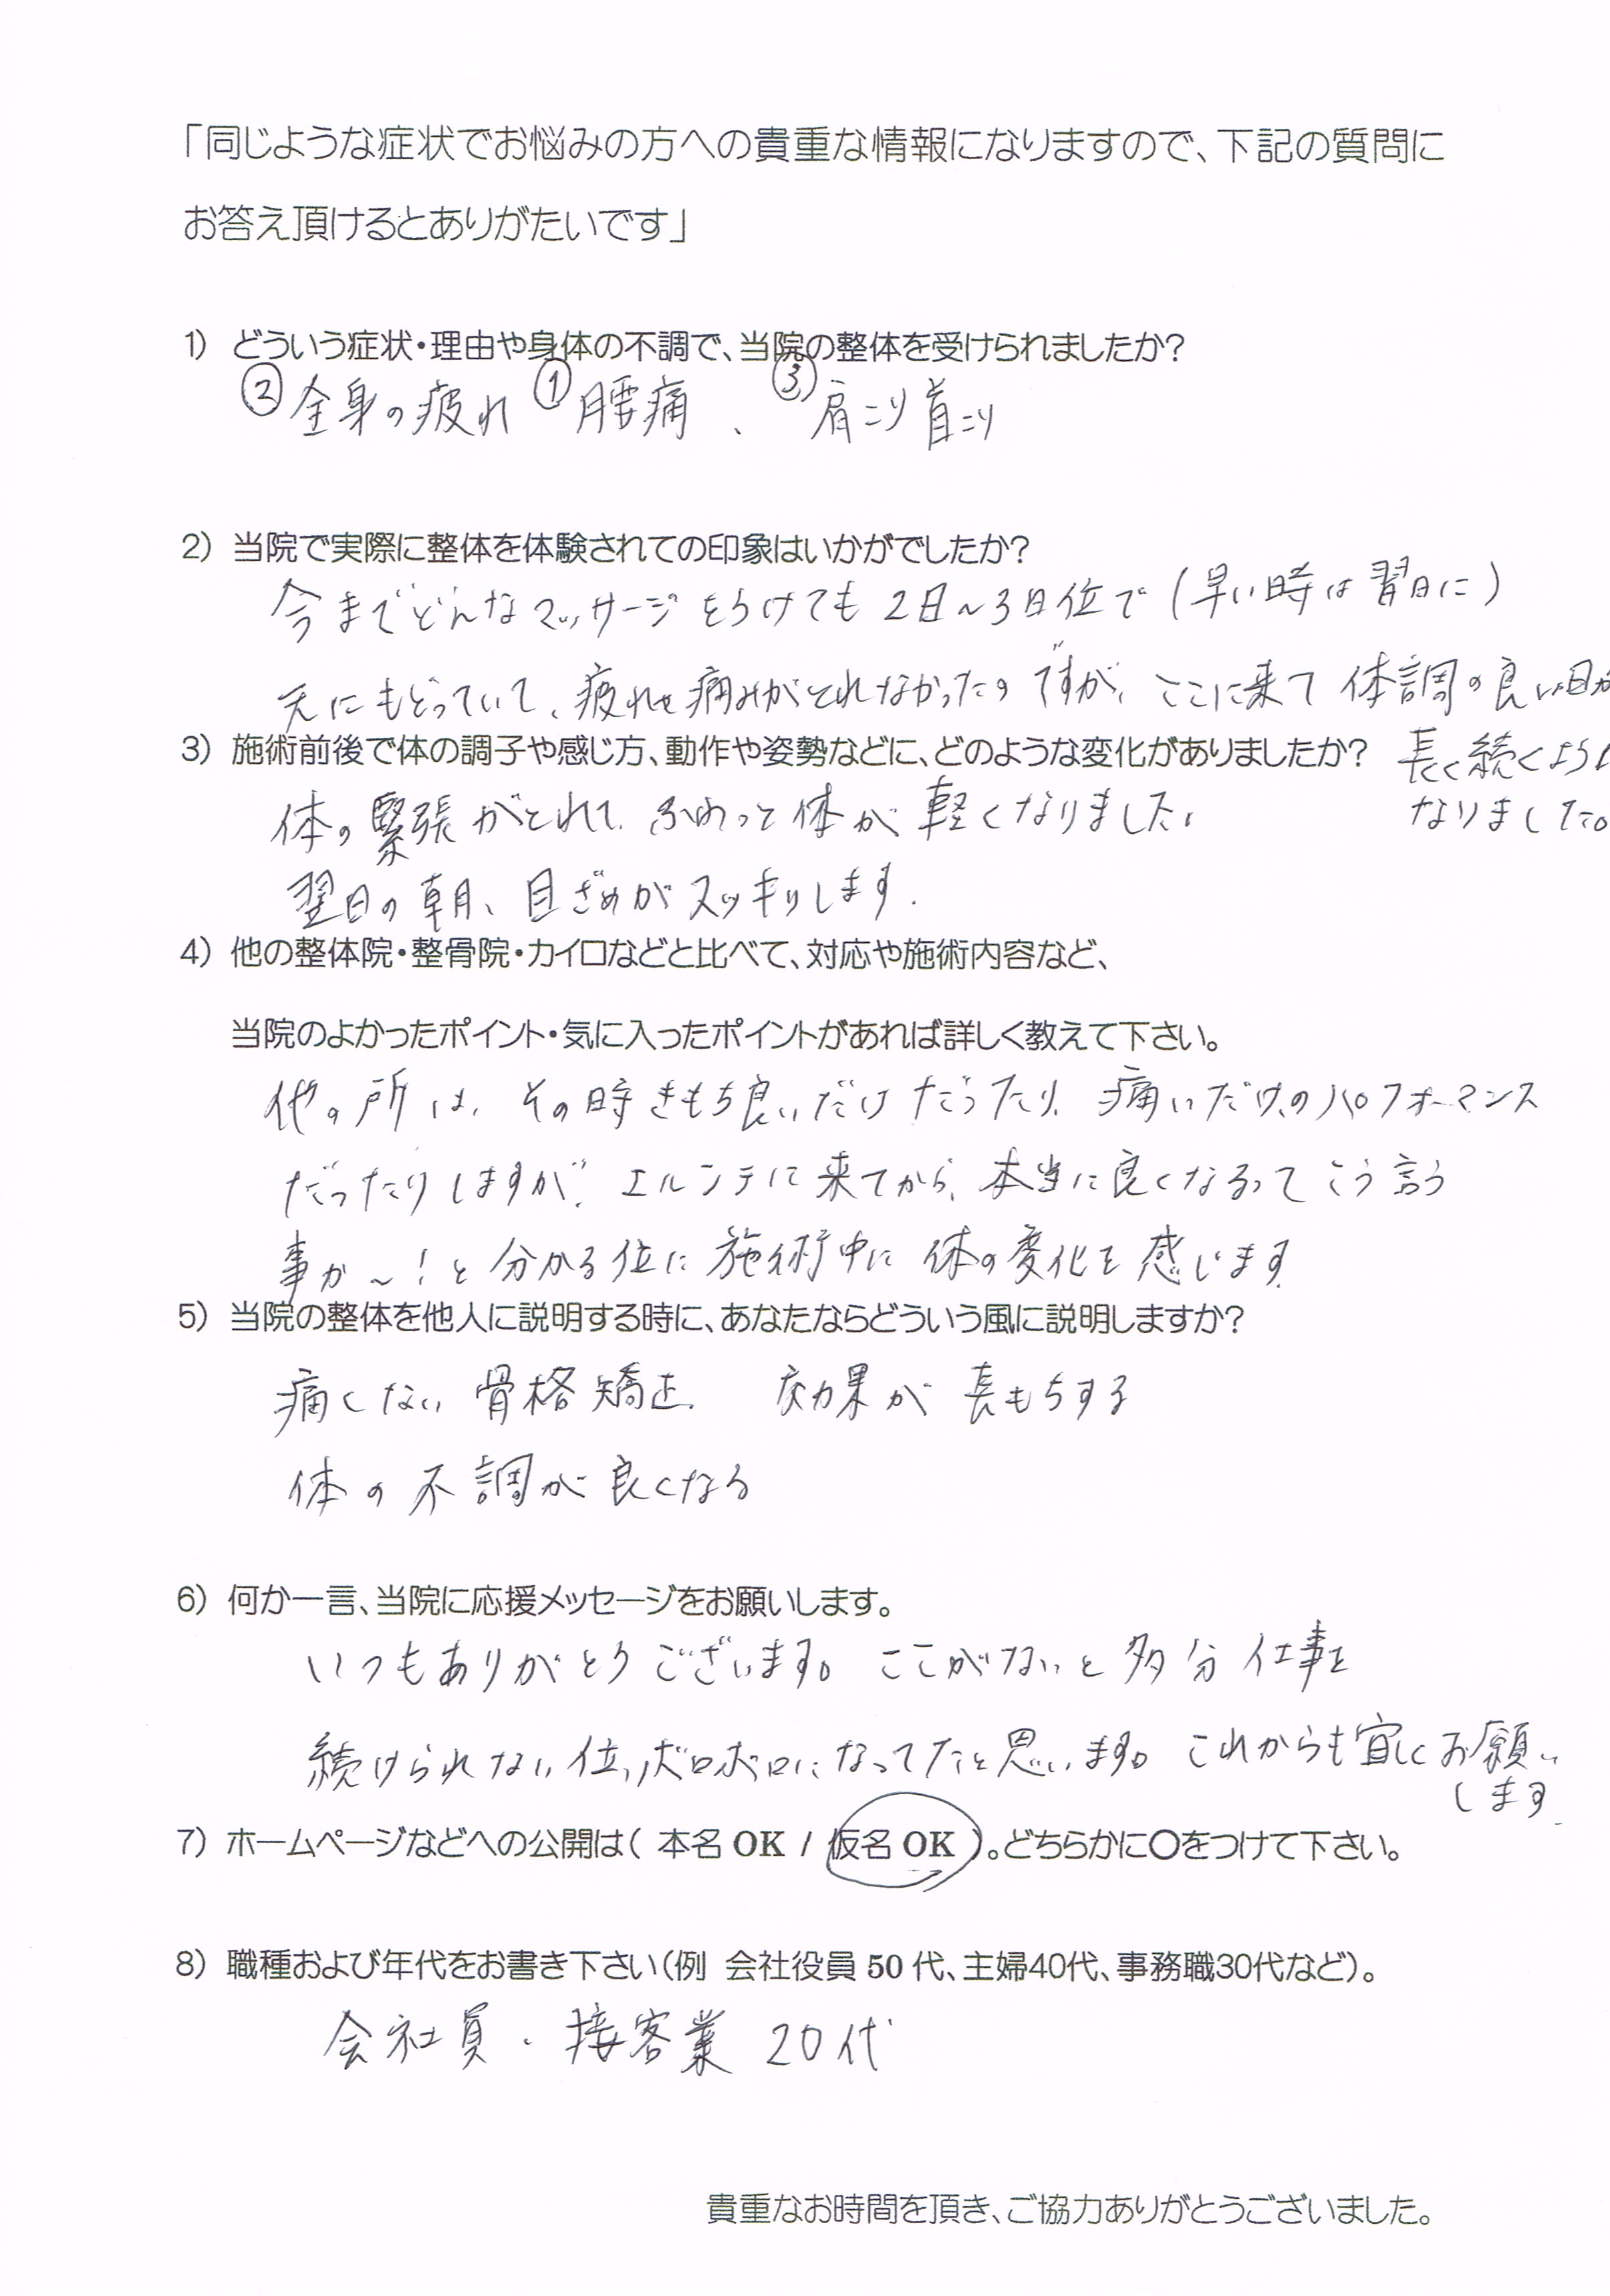 「同じような症状でお悩みの方への貴重な情報になりますので、下記の質問に
お答え頂けるとありがたいです」
1) どういう症状・理由や身体の不調で、当院の整体を受けられましたか?
②全身の疲れ ①腰痛、③肩こり首こり
2) 当院で実際に整体を体験されての印象はいかがでしたか?
今までどんなマッサージをうけても2日~3日位で(早い時は翌日に)
元にもどっていて、疲れや痛みがとれなかったのですが、ここに来て体調の良い日が
長く続くように
なりました。
3) 施術前後で体の調子や感じ方、動作や姿勢などに、どのような変化がありましたか?
体の緊張がとれて、ふわっと体が軽くなりました。
翌日の朝、目ざめがスッキリします.
4) 他の整体院・整骨院・カイロなどと比べて、対応や施術内容など、
当院のよかったポイント・気に入ったポイントがあれば詳しく教えて下さい。
他の所は、その時きもち良いだけだったり、痛いだけのパフォーマンス
だったりしますが、エルンテに来てから、本当に良くなるってこう言う
事か~!と分かる位に施術中に体の変化を感じます.
5) 当院の整体を他人に説明する時に、あなたならどういう風に説明しますか?
痛くない骨格矯正. 効果が長もちする
体の不調が良くなる
6) 何か一言、当院に応援メッセージをお願いします。
いつもありがとうございます。ここがないと多分仕事を
続けられない位、ボロボロになってたと思います。これからも宜しくお願い
します.
7) ホームページなどへの公開は( 本名 OK / 仮名 OK )。どちらかに〇をつけて下さい。
8) 職種および年代をお書き下さい(例 会社役員 50 代、主婦40代、事務職30代など)。
会社員、接客業 20代
貴重なお時間を頂き、ご協力ありがとうございました。